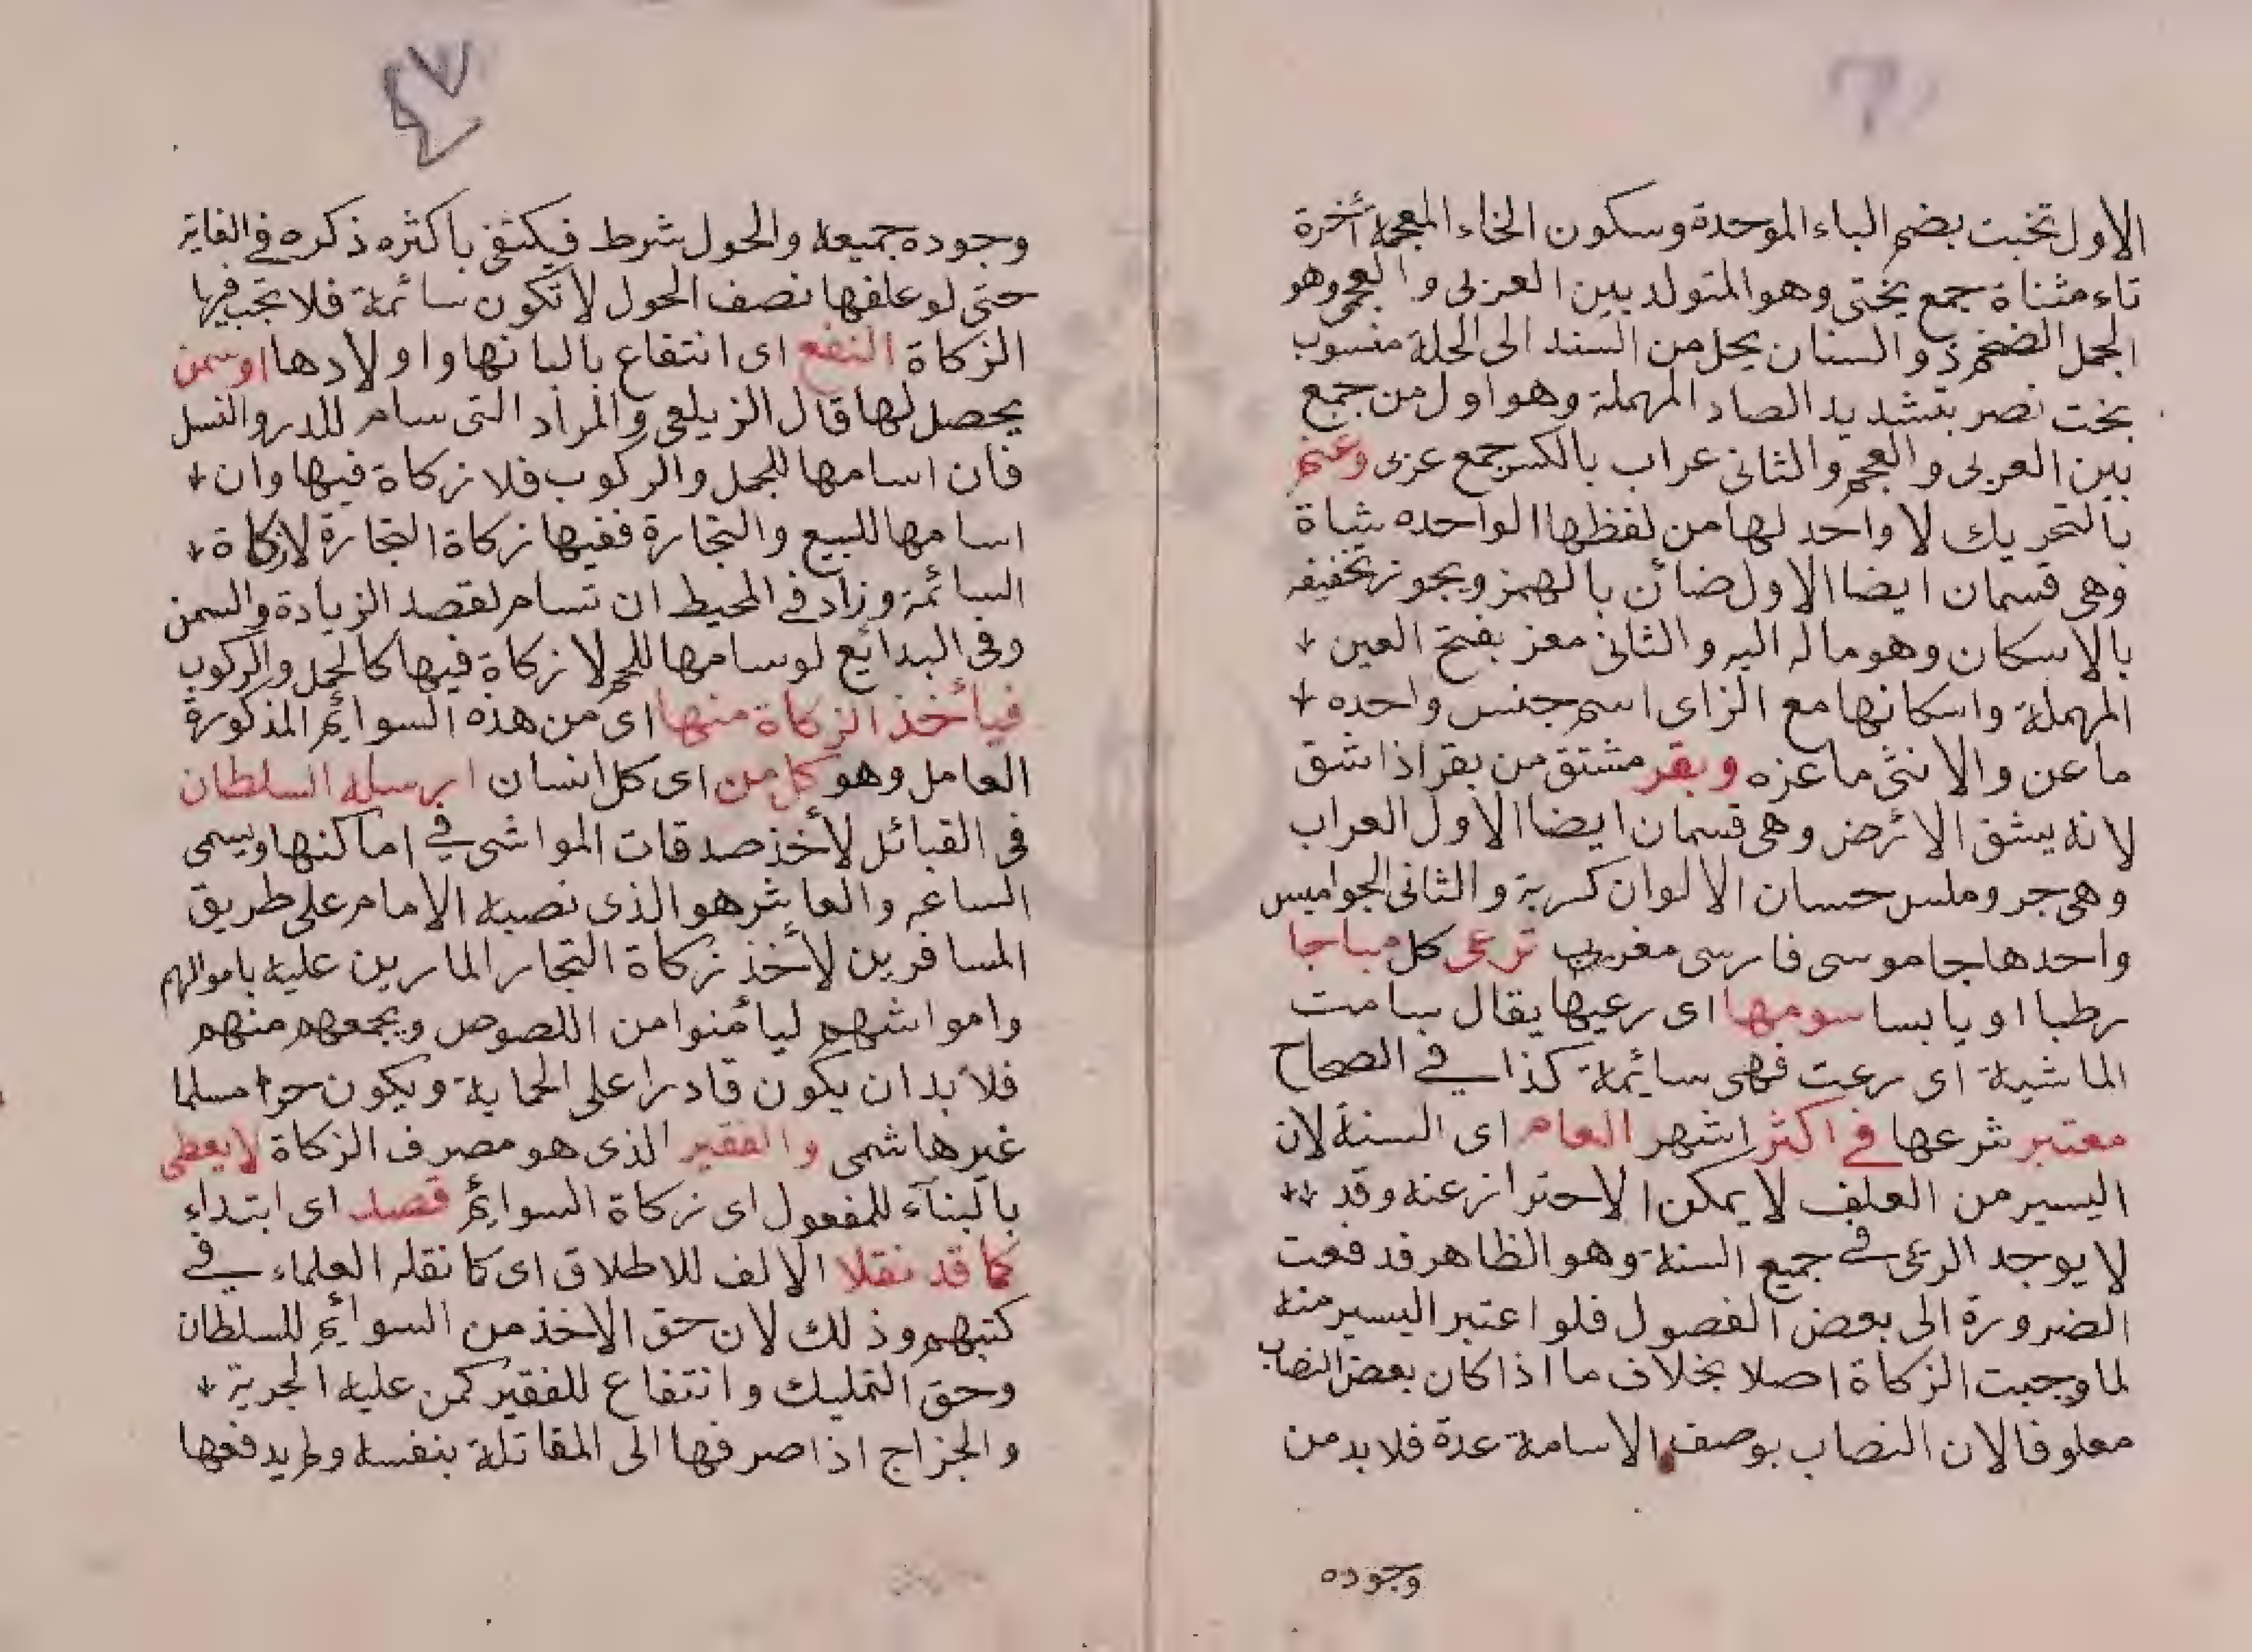 الاول تخبت بضم الباء الموحدة وسكون الخاء المعجمة أخرة
تاء مثناة جمع بختى وهو المتولد بين العربى والعجمى وهو
الجمل الضخم ذو السنان يحل من السند الى الحلة منسوب
بخت نصر بتشديد الصاد المهملة وهو اول من جمع
بين العربى والعجم والثانى عراب بالكسر جمع عربى وغنم
بالتحريك لا واحد لها من لفظها الواحده شاة
وهى قسمان ايضا الاول ضائن بالهمز ويجوز تخفيفه
بالاسكان وهو ماله اليه والثانى معز بفتح العين
المهملة واسكانها مع الزاى اسم جنس واحده
ماعن والانثى ماعزه وبقر مشتق من بقر اذا شق
لانه يشق الارض وهى قسمان ايضا الاول العراب
وهى جر وملس حسان الالوان كرية والثانى الجواميس
واحدها جاموسى فارسى معرب ترعى كل مباحا
رطبا او يابسا سومها اى رعيها يقال سامت
الماشية اى رعت فهى سائمة كذا في الصحاح
معتبر شرعها في اكثر اشهر العام اى السنة لان
اليسير من العلف لا يمكن الاحتراز عنه وقد
لا يوجد الرعى في جميع السنة وهو الظاهر فدفعت
الضرورة الى بعض الفصول فلو اعتبر اليسير منه
لما وجبت الزكاة اصلا بخلاف ما اذا كان بعض النصاب
معلوفا لان النصاب بوصف الاسامة عدة فلا بد من
وجوده
وجوده جميعه والحول شرط فيكتفى باكثره ذكره في الغاية
حتى لو علفها نصف الحول لا تكون سائمة فلا تجب فيها
الزكاة النفع اى انتفاع بالبانها واولادها اوسمن
يحصل لها قال الزيلعى والمراد التى سام للدر والنسل
فان اسامها للجمل والركوب فلا زكاة فيها وان
اسامها للبيع والتجارة ففيها زكاة التجارة لا زكاة
السائمة وزاد في المحيط ان تسام لقصد الزيادة والسمن
وفى البدائع لو سامها للحم لا زكاة فيها كالحمل والركوب
فيأخذ الزكاة منها اى من هذه السوائم المذكورة
العامل وهو كل من اى كل انسان ارسله السلطان
فى القبائل لأخذ صدقات المواشى في اماكنها ويسمى
الساعى والعاشر هو الذى نصبه الامام على طريق
المسافرين لأخذ زكاة التجار المارين عليه باموالهم
وامواشهم ليأمنوا من اللصوص ويجمعهم منهم
فلا بد ان يكون قادرا على الحماية ويكون حرا مسلما
غير هاشمى والفقير الذى هو مصرف الزكاة لا يعطى
بالبناء للمفعول اى زكاة السوائم قصد اى ابتداء
كما قد نقلا الالف للاطلاق اى كما نقله العلماء في
كتبهم وذلك لان حق الاخذ من السوائم للسلطان
وحق التمليك وانتفاع للفقير كمن عليه الجرية
والجزاج اذا صرفها الى المقاتلة بنفسه ولم يدفعها